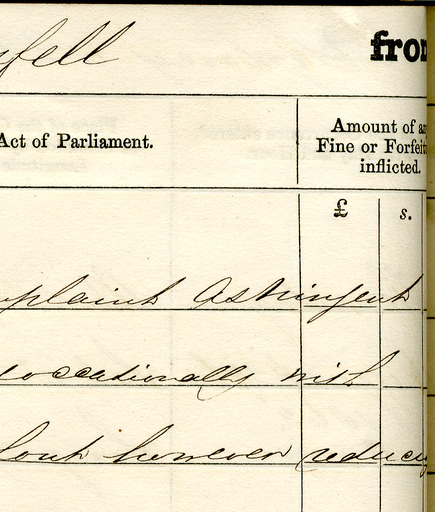 fell
fro
Act of Parliament.
Amount of a
Fine or Forfeit
inflicted.
£ s.
plaint Astringent
occationally with
bout however reduc